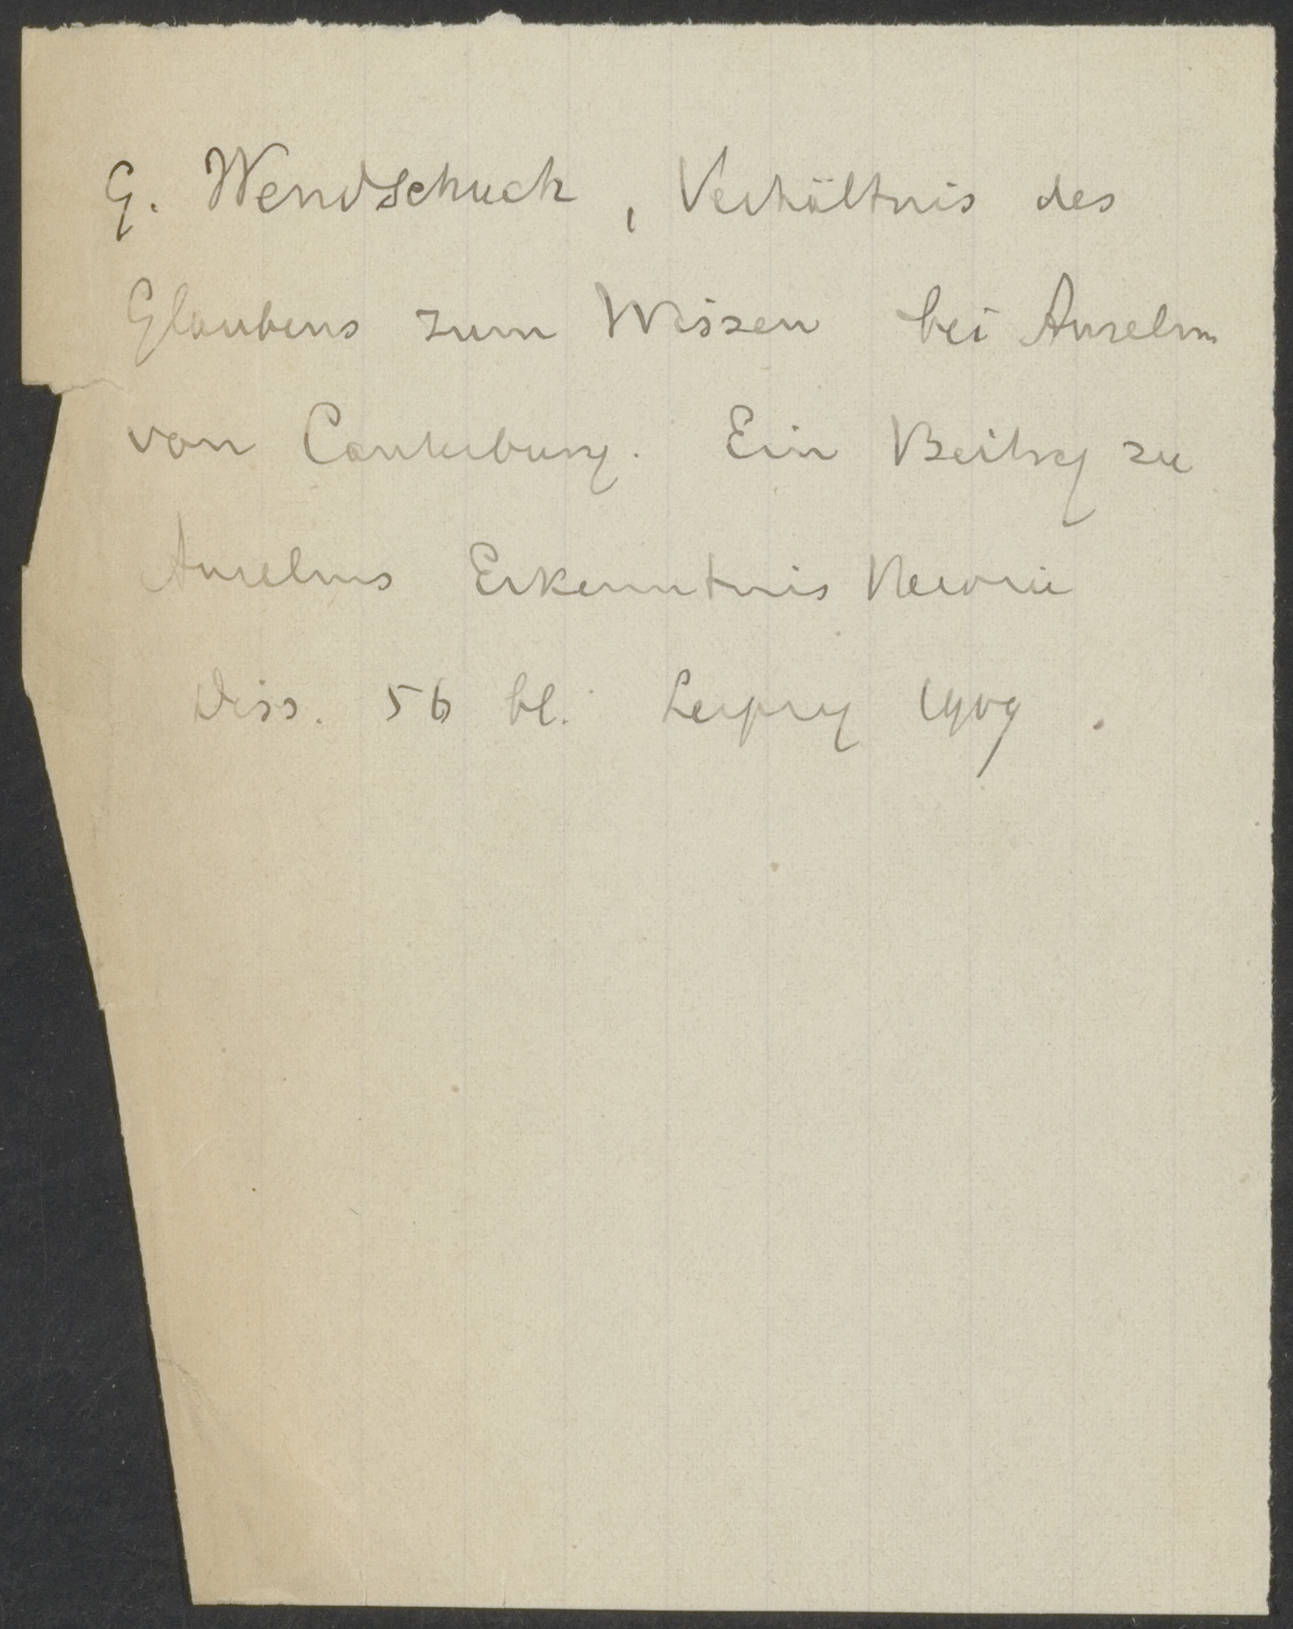 G. Wendschuch, Verhältnis des
Glaubens zum Wissen bei Anselm
von Canterbury. Ein Beitrag zu
Anselms Erkenntnistheorie
Diss. 56 bl. Leipzig 1909.